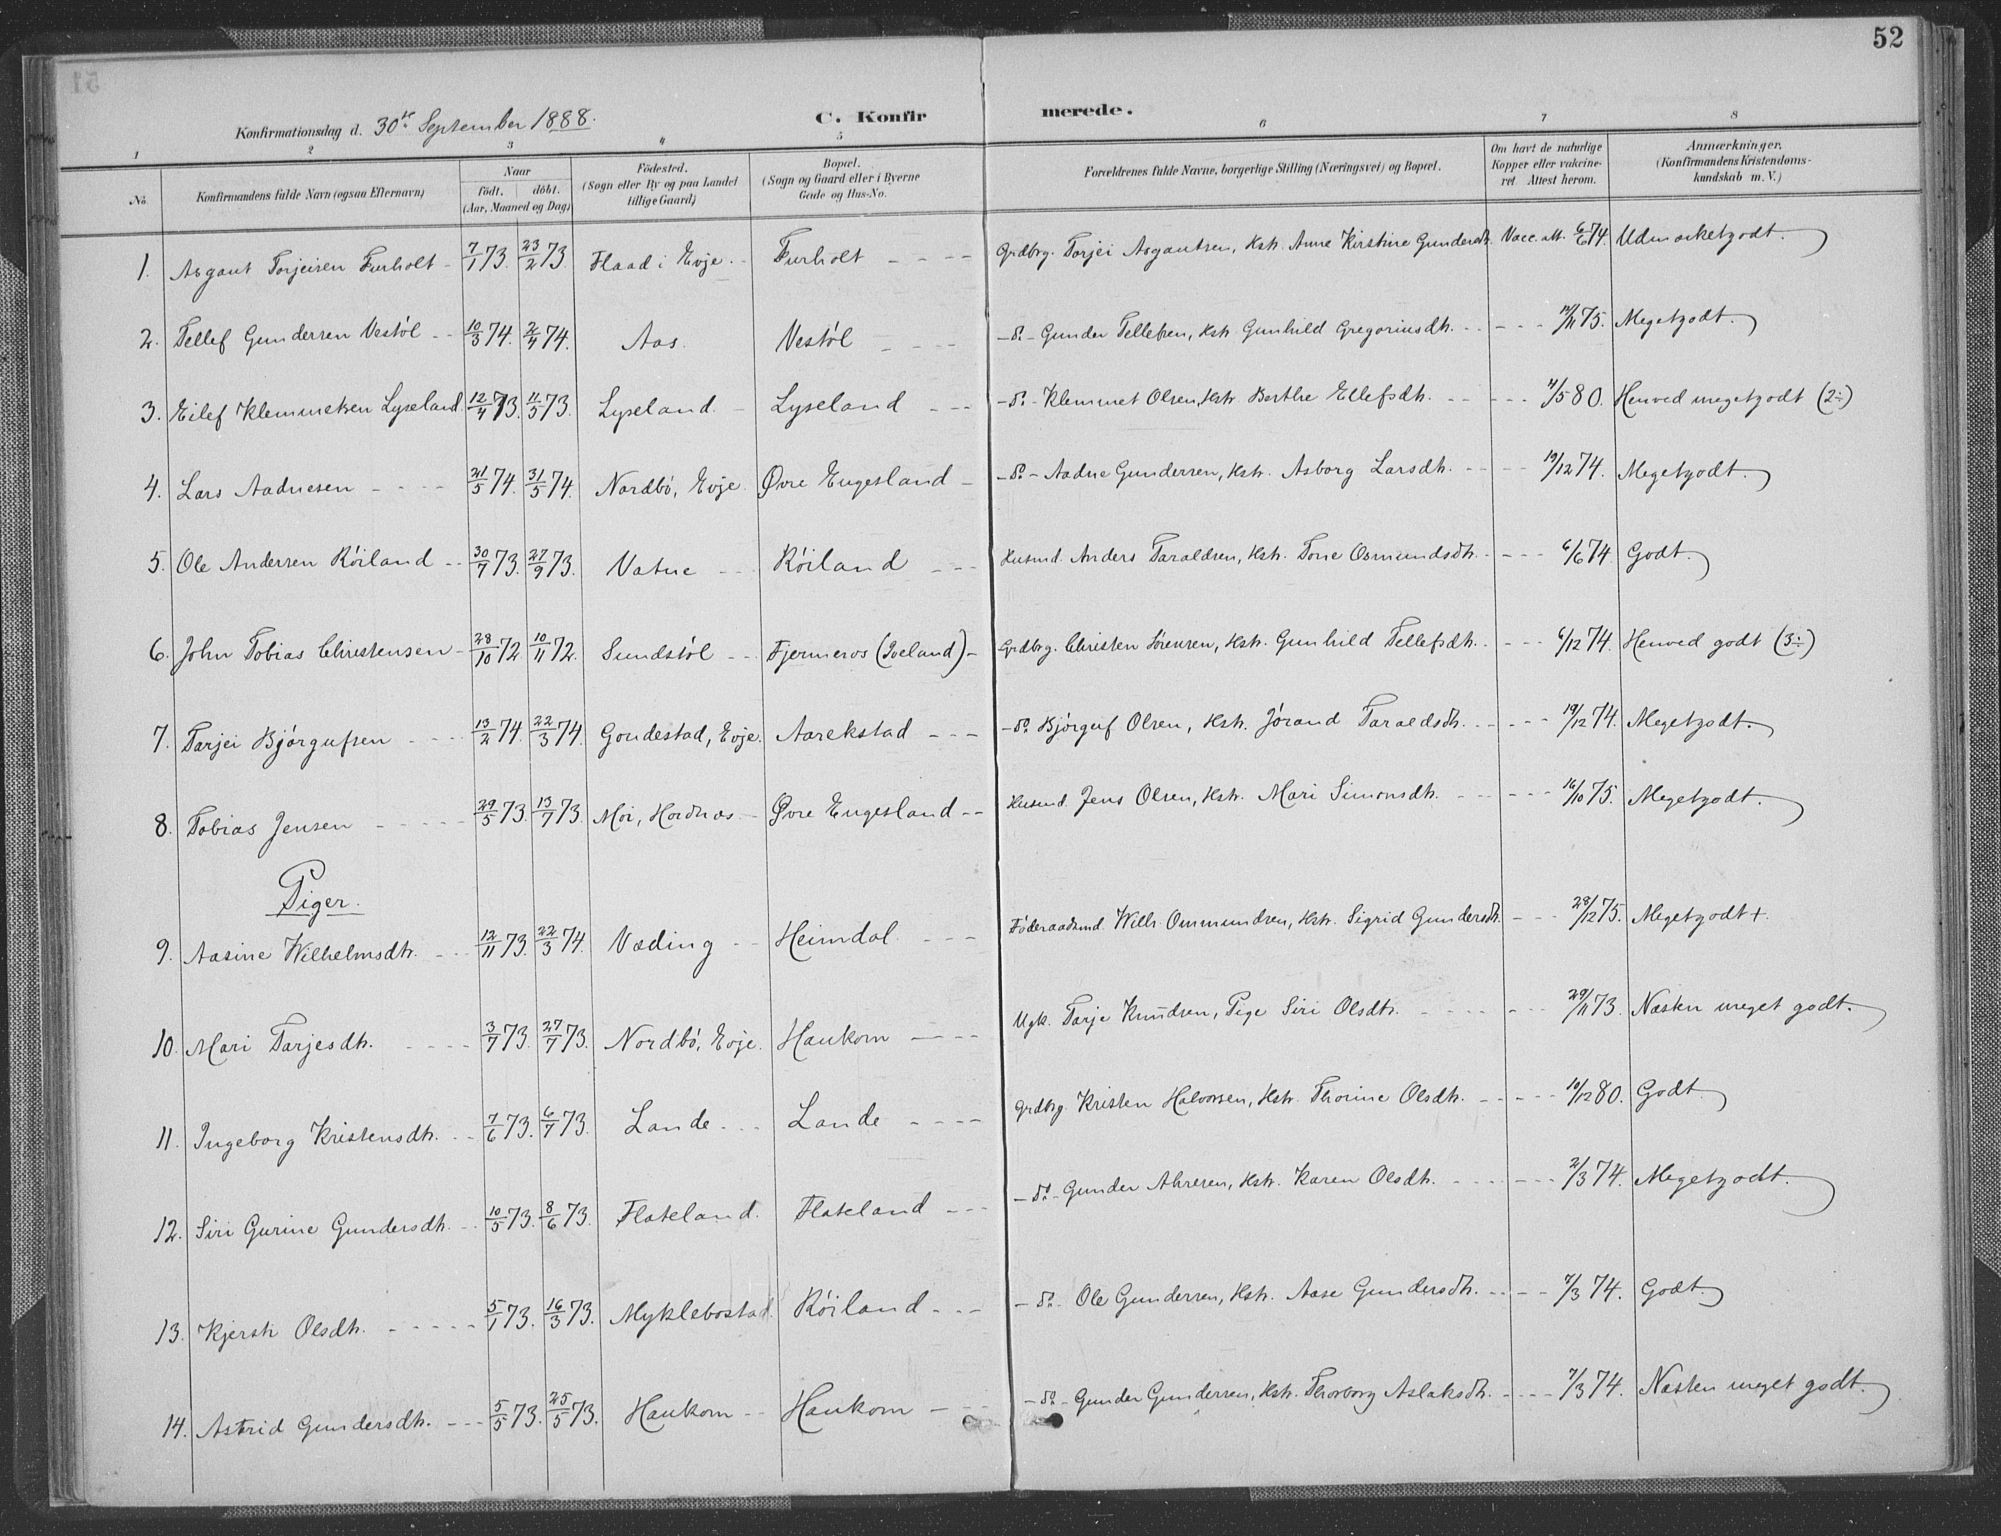 52
Konfirmationsdag d. 30te September 1888. C. Konfirmerede.
1 2 3 4 5 6 7 8
No Konfirmandens fulde Navn (ogsaa Efternavn) Naar født. døbt. (Aar, Maaned og Dag) Fødested. (Sogn eller By og paa Landet tillige Gaard) Bopæl. (Sogn og Gaard eller i Byerne Gade og Hus-No. Forældrenes fulde Navne, borgerlige Stilling (Næringsvei) og Bopæl. Om havt de naturlige Kopper eller vakcineret Attest herom. Anmærkninger. (Konfirmandens Kristendomskundskab m. V.)
1. Asgaut Torjeisen Furholt - 7/1 73. 23/2 73. Flaad i Evje. - Furholt - - - - Grdbrg. Torjei Asgautsen, Kstr. Anne Kirstine Gundersdtr. Vacc. att. 6/6 74. Udmærketgodt.
2. Tellef Gundersen Vestøl - - 10/3 74. 2/4 74. Aas. Vestøl - - - - do - Gunder Tellefsen, Kstr. Gunhild Gregoriusdtr. - - - - - 11/11 75. Megetgodt.
3. Eilef Klemmetsen Lyseland. 12/4 73. 11/5 73. Lyseland. - Lyseland - - - - do - Klemmet Olsen, Kstr. Berthe Ellefsdtr. - - - - - 4/5 80. Henved megetgodt (2÷)
4. Lars Aadnesen - - - - 21/5 74. 31/5 74. Nordbø, Evje. Øvre Engesland - - do - Aadne Gundersen, Kstr. Asborg Larsdtr. - - - - 19/12 74. Megetgodt.
5. Ole Andersen Røiland - - 30/7 73. 27/9 73. Vatne - - Røiland - - - Husmd. Anders Taraldsen, Kstr. Tone Osmundsdtr. - - - - 6/6 74. Godt.
6. John Tobias Christensen - 28/10 72. 10/11 72. Sundstøl - - Fjermeros (Iveland) - Grdbrg. Christen Sørensen, Kstr. Gunhild Tellefsdtr. - - - - 6/12 74. Henved godt (3÷)
7. Tarjei Bjørgufsen - - - - 13/2 74. 22/3 74. Goudestad, Evje. Aarekstad - - - - do. Bjørguf Olsen, Kstr. Jørand Taraldsdtr. - - - - - 19/12 74. Megetgodt.
8. Tobias Jensen - - - - - 29/5 73. 13/7 73. Moi, Hordnæs. - Øvre Engesland - - Husmd. Jens Olsen, Kstr. Mari Simonsdtr. - - - - - 16/10 75. Megetgodt.
Piger.
9. Aasine Wilhelmsdtr. - - - 12/11 73. 22/3 74. Væding - - Heimdal. - - - Føderaadsmd. Wilh. Ommundsen, Kstr. Sigrid Gundersdtr. - - - 28/12 75. Megetgodt +.
10. Mari Tarjesdtr. - - - - 3/7 73. 27/7 73. Nordbø, Evje. Haukom - - - Ugk. Tarje Knudsen, Pige Siri Olsdtr. - - - - - - - 29/11 73. Næsten meget godt.
11. Ingeborg Kristensdtr. - - 7/6 73. 6/7 73. Lande - - - Lande - - - - Grdbrg. Kristen Halvorsen, Kstr. Thorine Olsdtr. - - - - - 10/12 80. Godt.
12. Siri Gurine Gundersdtr. - - 10/5 73. 8/6 73. Flateland. Flateland - - - - do - Gunder Ahresen, Kstr. Karen Olsdtr. - - - - - - 2/3 74. Megetgodt.
13. Kjersti Olsdtr. - - - - - 5/1 73. 16/3 73. Myklebostad. Røiland - - - - do. Ole Gundersen, Kstr. Aase Gundersdtr. - - - - 7/3 74. Godt.
14. Astrid Gundersdtr. - - - 5/5 73. 25/5 73. Haukom - - Haukom - - - - do - Gunder Gundersen, Kstr. Thorborg Aslaksdtr. - - - - 7/3 74. Næsten meget godt.